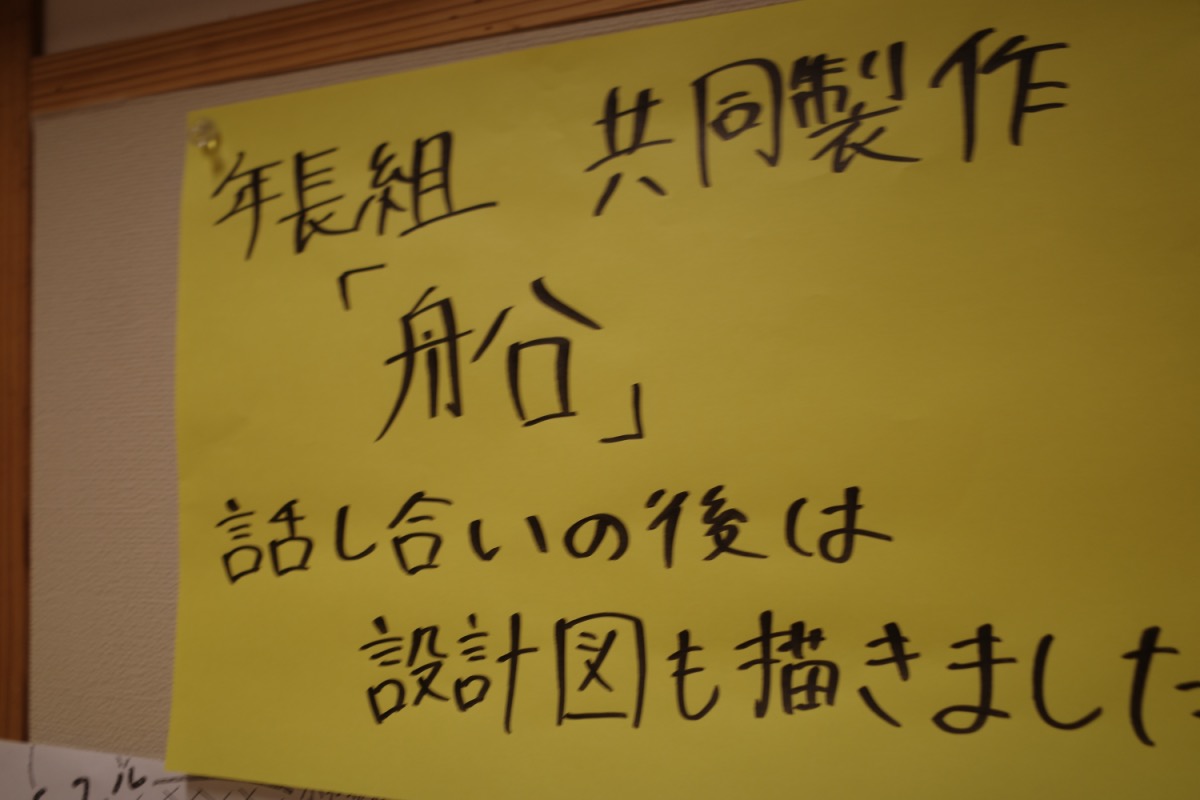 年長組 共同製作
「船」
話し合いの後は
設計図も描きました